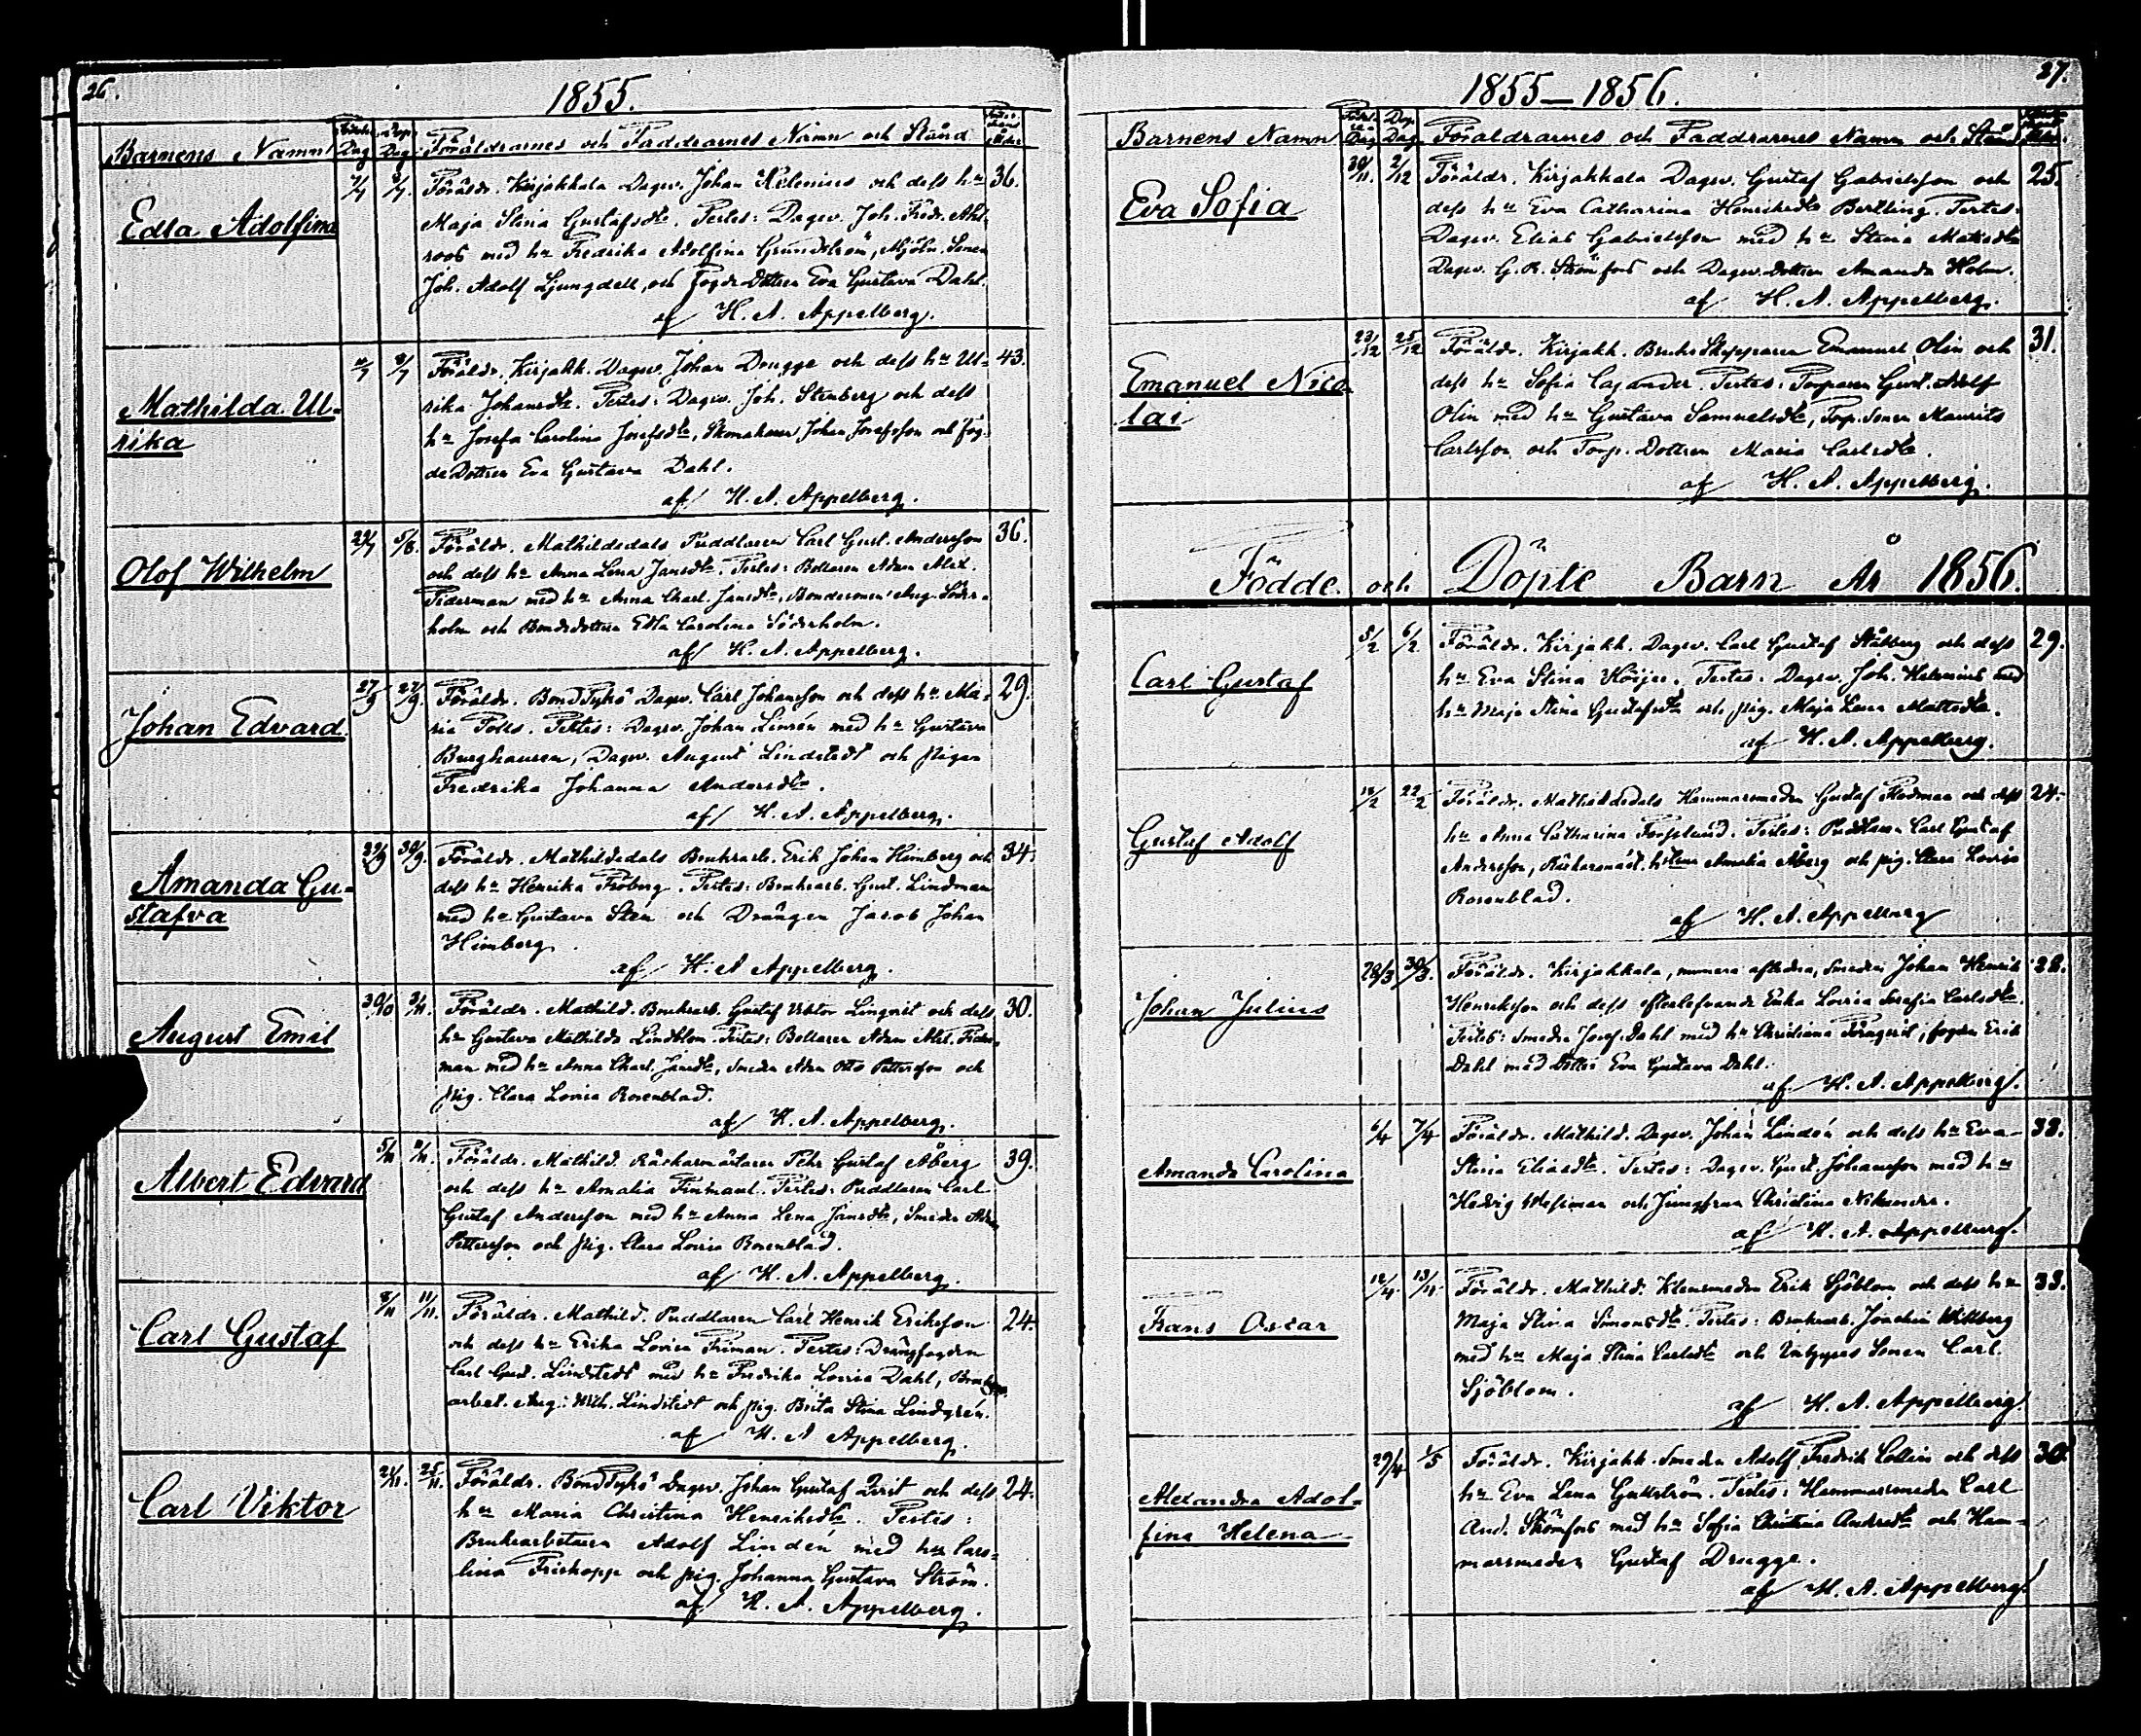 26.
1855.
Barnens Namn Dag Dag Föräldrarnes och Faddrarnes Namn och Stånd
Edla Adolfina
Föräldr. Kirjakkala Dagsv. Johan Helenius och dess hu 36.
Maja Stina Gustafsdtr. Testes: Dagsv. Joh. Fredr. Ahl-
roos med hu Fredrika Adolfina Grundström, Mjöln. Sonen
Joh. Adolf Ljungdell, och Fogde Dottren Eva Gustava Dahl.
af H. A. Appelberg.
Mathilda Ul-
rika
Föräldr. Kirjakk. Dagsv. Johan Drugge och dess hu Ul- 43.
rika Johansdtr. Testes: Dagsv. Joh. Stenberg och dess
hu Josefa Carolina Josefsdtr, Skomakaren Johan Josefsson och Fog-
de Dottren Eva Gustava Dahl.
af H. A. Appelberg.
Olof Wilhelm
Föräldr. Mathildedals Puddlaren Carl Gust. Andersson 36.
och dess hu Anna Lena Jansdtr. Testes: Bollaren Adam Alex.
Federman med hu Anna Charl. Jansdtr, Bondesonen Aug. Söder-
holm och Bondedottren Edla Carolina Söderholm.
af H. A. Appelberg.
Johan Edvard
27/9 27/9. Föräldr. BondTykö Dagsv. Carl Johansson och dess hu Ma- 29.
ria Polls. Testes: Dagsv. Johan Linrén med hu Gustava
Burghausen, Dagsv. August Lindstedt och pigan
Fredrika Johanna Andersdtr.
af H. A. Appelberg.
Amanda Gu-
stafva
29/9 30/9. Föräldr. Mathildedals Bruksarb. Erik Johan Himberg och 34.
dess hu Henrika Fröberg. Testes: Bruksarb. Gust. Lindman
med hu Gustava Sten och Drängen Jacob Johan
Himberg.
af H. A Appelberg.
August Emil
30/10 Föräldr. Mathild. Bruksarb. Gustaf Viktor Linqvist och dess 30.
hu Gustava Mathilda Lindblom. Testes: Bollaren Adam Alex. Feder-
man med hu Anna Charl. Jansdtr, Smeden Adam Otto Pettersson och
pig. Clara Lovisa Rosenblad.
af H. A. Appelberg.
Albert Edvard
5/11 Föräldr. Mathild. Räckarmästaren Pehr Gustaf Åberg 39.
och dess hu Amalia Finmant. Testes: Puddlaren Carl
Gustaf Andersson med hu Anna Lena Jansdtr, Smeden Adam
Pettersson och pig. Clara Lovisa Rosenblad.
af H. A. Appelberg.
Carl Gustaf
8/11 11/11. Föräldr. Mathild. Puddlaren Carl Henrik Eriksson 24.
och dess hu Erika Lovisa Friman. Testes: Drängfogden
Carl Gust. Lindstedt med hu Fredrika Lovisa Dahl, Bruks
arbet. Aug. Wilh. Lindstedt och pig. Brita Stina Lindgrén.
af H. A Appelberg.
Carl Viktor
24/11. 25/11. Föräldr. BondTykö Dagsv. Johan Gustaf Qvist och dess 24.
hu Maria Christina Henriksdtr. Testes:
Bruksarbetaren Adolf Lindén med hu Caro-
lina Friskopp och pig. Johanna Gustava Ström.
af H. A. Appelberg.
27.
1855—1856.
Barnens Namn Dag Dag Föräldrarnes och Faddrarnes Namn och Stånd
Eva Sofia
30/11. 2/12 Föräldr. Kirjakkala Dagsv. Gustaf Gabrielsson och 25.
dess hu Eva Catharina Henriksdtr Bertling. Testes:
Dagsv. Elias Gabrielsson med hu Stina Matsdtr
Dagsv. G. R. Strömfors och Dagsv. Dottren Amanda Holm.
af H. A. Appelberg.
Emanuel Nico-
lai
23/12 25/12 Föräldr. Kirjakk. Bruks Skepparen Emanuel Olin och 31.
dess hu Sofia Cajander. Testes: Torparen Gust. Adolf
Olin med hu Gustava Samuelsdtr, Torp. Sonen Maurits
Carlsson och Torp. Dottren Maria Carlsdtr.
af H. A. Appelberg.
Födde och Döpte Barn År 1856.
Carl Gustaf
5/2 6/2 Föräldr. Kirjakk. Dagsv. Carl Gustaf Stålberg och dess 29.
hu Eva Stina Höijer. Testes: Dagsv. Joh. Helenius med
hu Maja Stina Gustafsdtr och pig. Maja Lena Mattsdtr.
af H. A. Appelberg.
Gustaf Adolf
22/2 Föräldr. Mathildedals Hammarsmeden Gustaf Flodman och dess 24.
hu Anna Catharina Forsslund. Testes: Puddlaren Carl Gustaf
Andersson, Räckarmäst. hustru Amalia Åberg och pig. Clara Lovisa
Rosenblad.
af H. A. Appelberg
Johan Julius
28/3 30/3. Föräldr. Kirjakkala, numera aflidna, Smeden Johan Henrik 28.
Henriksson och dess efterlefvande Enka Lovisa Serafia Carlsdtr.
Testes: Smeden Josef Dahl med hu Christiana Törnqvist, fogden Erik
Dahl med Dotter Eva Gustava Dahl.
af H. A. Appelberg.
Amanda Carolina
6/4 7/4 Föräldr. Mathild. Dagsv. Johan Lindén och dess hu Eva 38.
Stina Eliasdtr. Testes: Dagsv. Gust. Johansson med hu
Hedvig och Jungfrun Christina Nikander.
af H. A. Appelberg.
Frans Oscar
12/4. 13/4. Föräldr. Mathild. Klensmeden Erik Sjöblom och dess hu 33.
Maja Stina Simonsdtr. Testes: Bruksarb. Joachim Willberg
med hu Maja Stina Carlsdtr och Sonen Carl
Sjöblom.
af H. A. Appelberg.
Alexandra Adol-
fina Helena
29/4 1/5 Föräldr. Kirjakk. Smeden Adolf Fredrik Collin och dess 30.
hu Eva Lena Gullström. Testes: Hammarsmeden Carl
And. Strömfors med hu Sofia Christina Andersdtr och Ham-
marsmeden Gustaf Drugge.
af H. A. Appelberg.